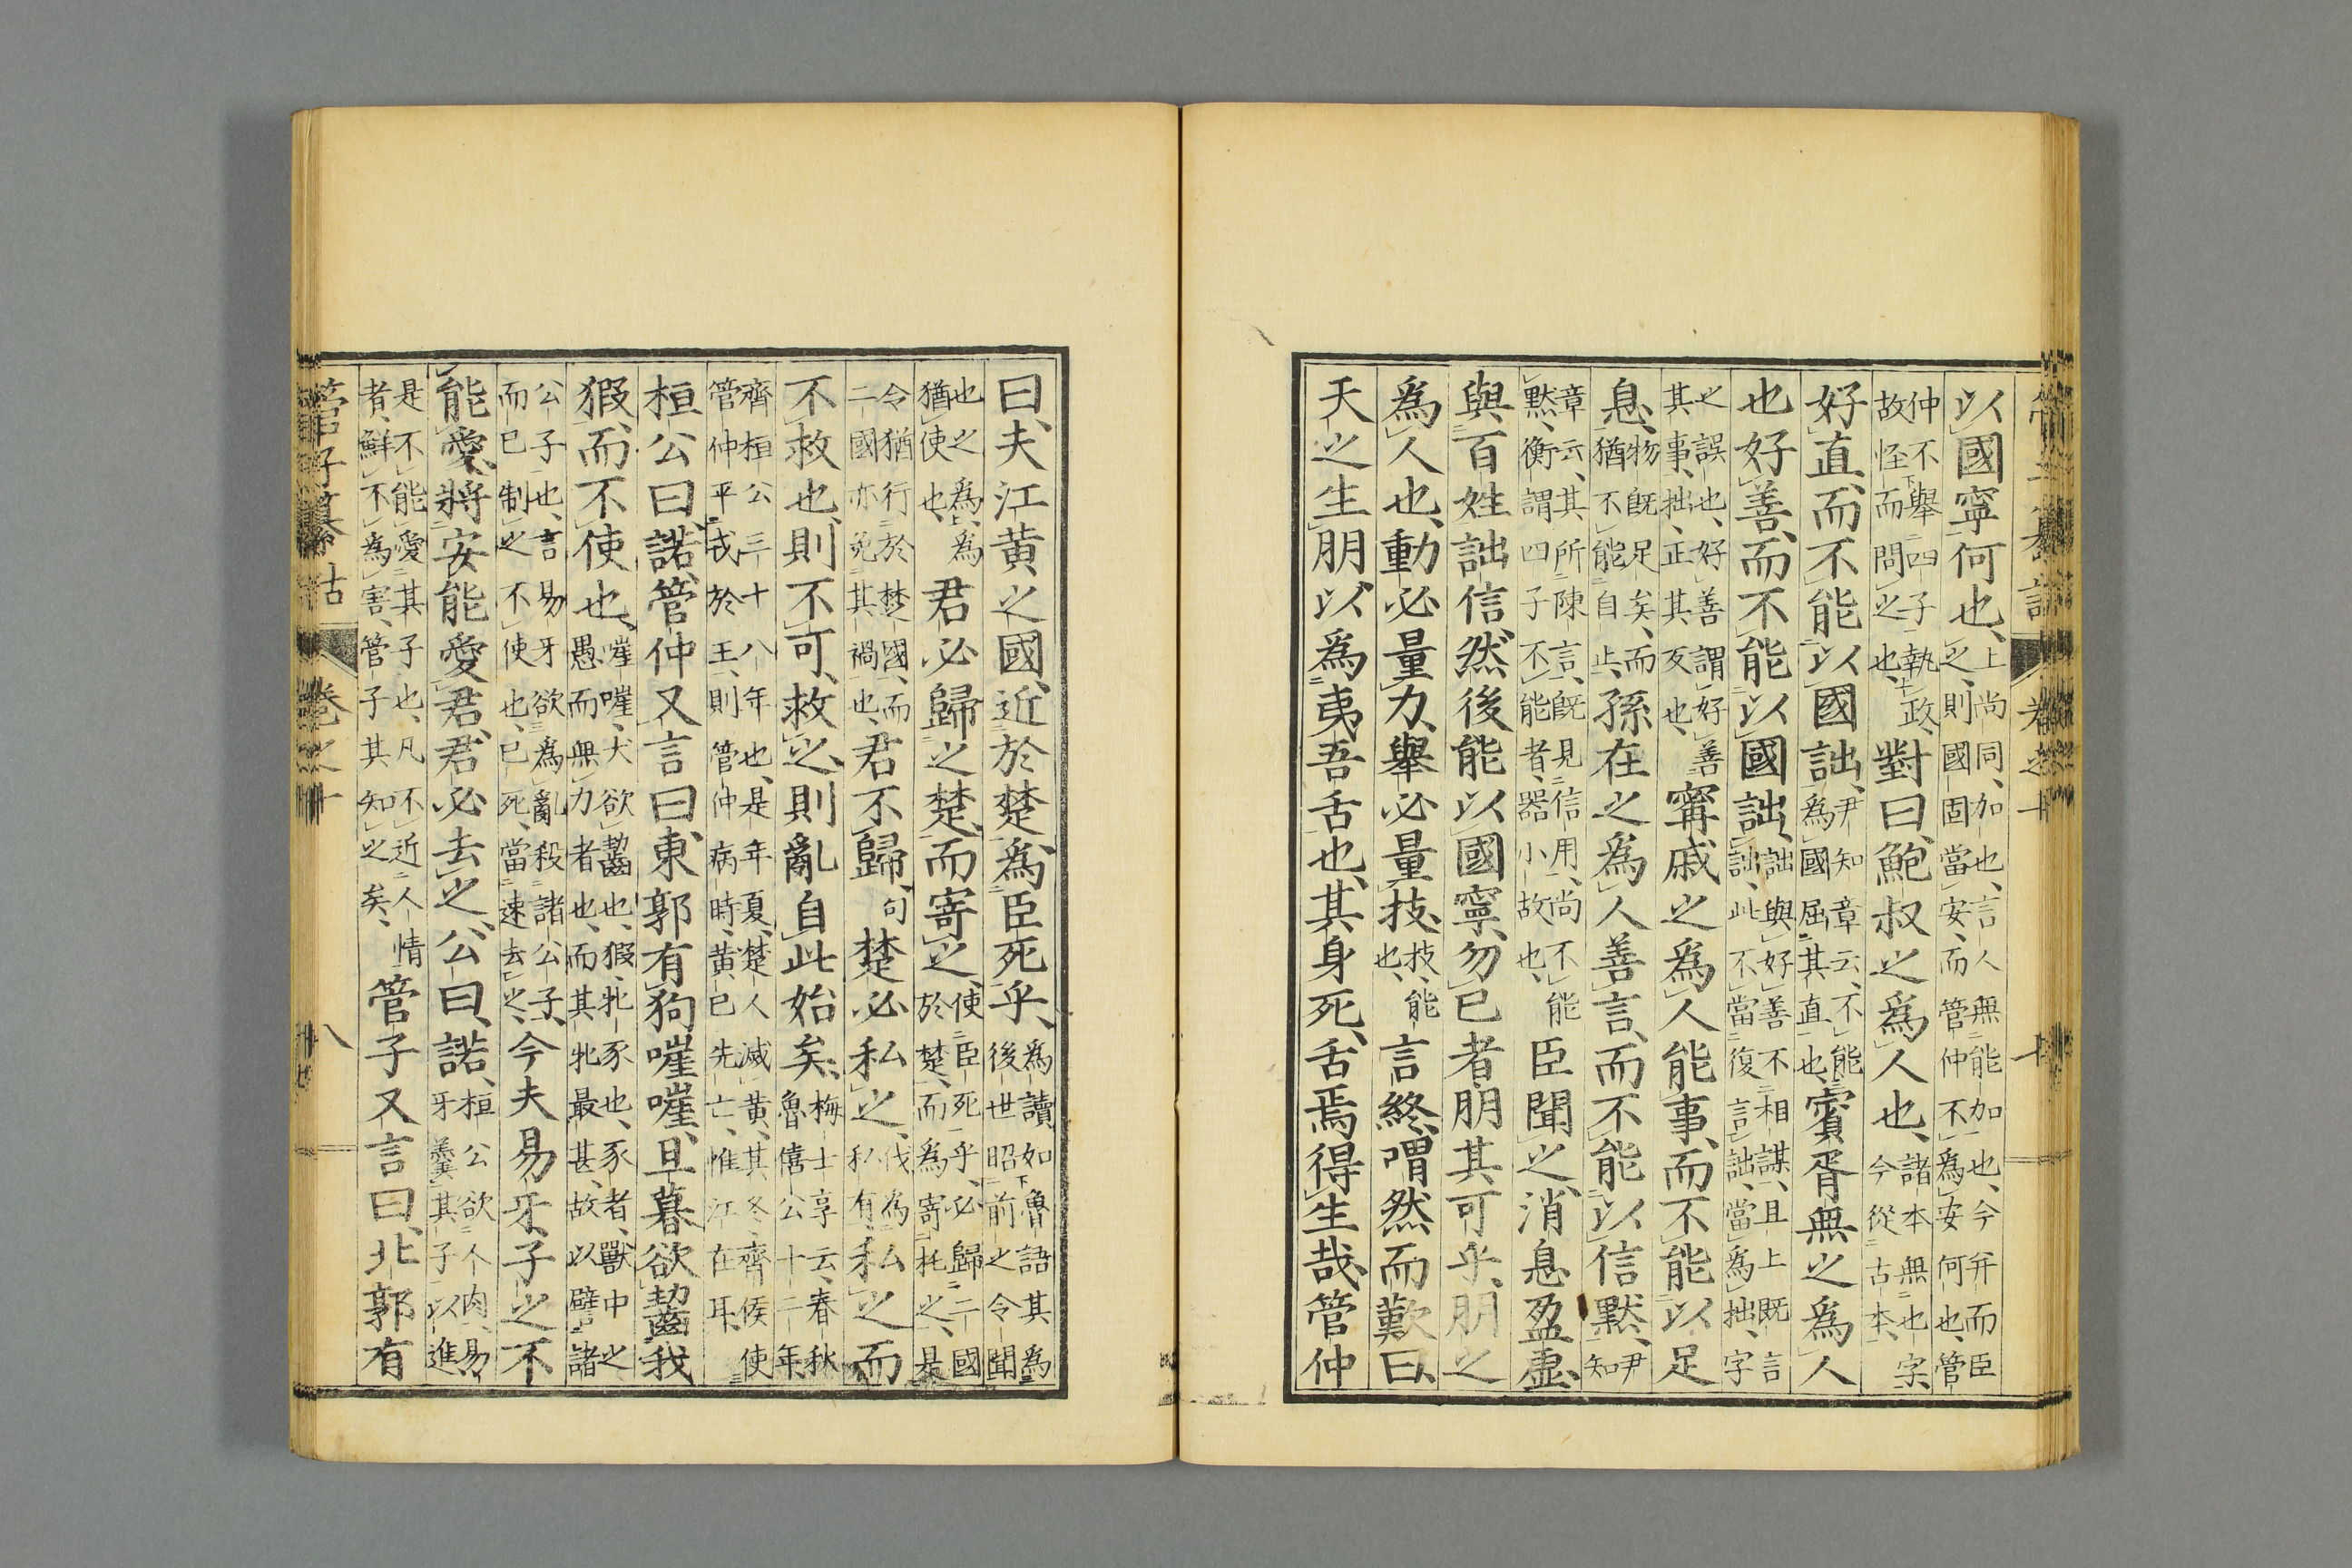 管子纂詁 卷之十 十
以國寧何也、上尚同、加也、言人無能加也、今并而臣之、則國固當安、而管仲不為安何也、管
仲不舉四子執政、故怪而問之也、對曰、鮑叔之爲人也、諸本無也字、今從古本、
好直、而不能以國詘、尹知章云、不能為國屈其直也、賓胥無之爲人
也好善、而不能以國詘、詘與好善不相謀、且上既言詘、此不當復言詘、當為拙、字
之誤也、好善謂好善其事、拙、正其反也、甯戚之爲人能事、而不能以足
息、物既足矣、而猶不能自止、孫在之爲人善言、而不能以信默、尹知
章云、其所陳言、既見信用、尚不能默、衡謂四子不能者、器小故也、臣聞之、消息盈虛、
與百姓詘信、然後能以國寧、勿已者朋其可乎、朋之
爲人也、動必量力、舉必量技、技、能也、言終、喟然而歎曰、
天之生朋以爲夷吾舌也、其身死、舌焉得生哉、管仲
曰、夫江黃之國、近於楚、爲臣死乎、為讀如魯語其為後世昭前之令聞
也之為、為猶使也、君必歸之楚、而寄之、使臣死乎、必歸二國於楚、而為寄託之、是
令猶行於楚國、而二國亦免其禍也、君不歸、句楚必私之、伐為私有、私之而
不救也、則不可、救之、則亂自此始矣、梅士享云、春秋魯僖公十二年
齊桓公三十八年也、是年夏、楚人滅黃、其冬、齊侯使管仲平戎於王、則管仲病時、黃已先亡、惟江在耳、
桓公曰、諾、管仲又言曰、東郭有狗嘊嘊、旦暮欲齧我
猳、而不使也、嘊嘊、犬欲齧也、猳、牝豕也、豕者、獸中之愚而無力者也、而其牝最甚、故以譬諸
公子也、言易牙欲為亂殺諸公子、而已制之不使也、已死、當速去之、今夫易牙、子之不
能愛、將安能愛君、君必去之、公曰、諾、桓公欲人肉、易牙羹其子以進
是不能愛其子也、凡不近人情者、鮮不為害、管子其知之矣、管子又言曰、北郭有
管子纂詁 卷之十 八